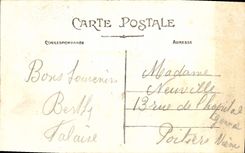 CARTE POSTALE
CORRESPONDANCE
ADRESSE
Bons Souvenirs
Berthe
Falaise
Madame
Neuville
13 rue de l'hopital
Poitiers Vien